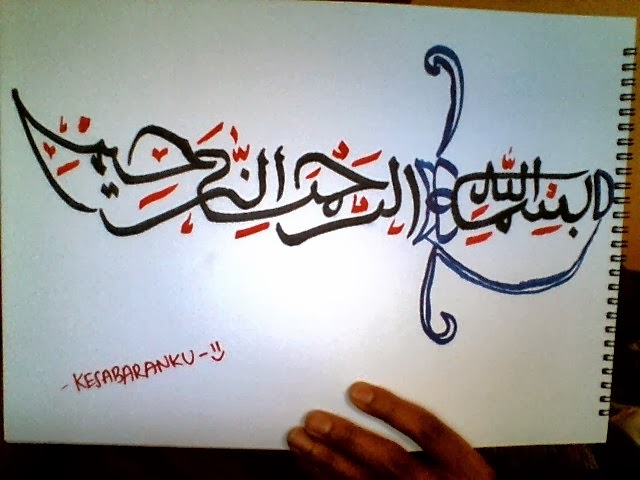 بسم الله الرحمن الرحيم
- KESABARANKU -